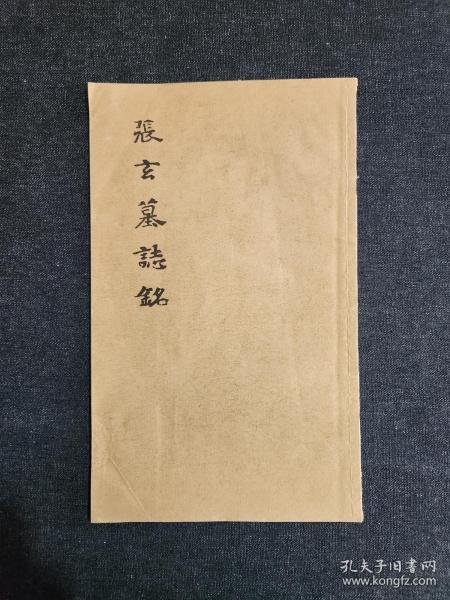 張玄墓誌銘
孔夫子旧书网
www.kongfz.com